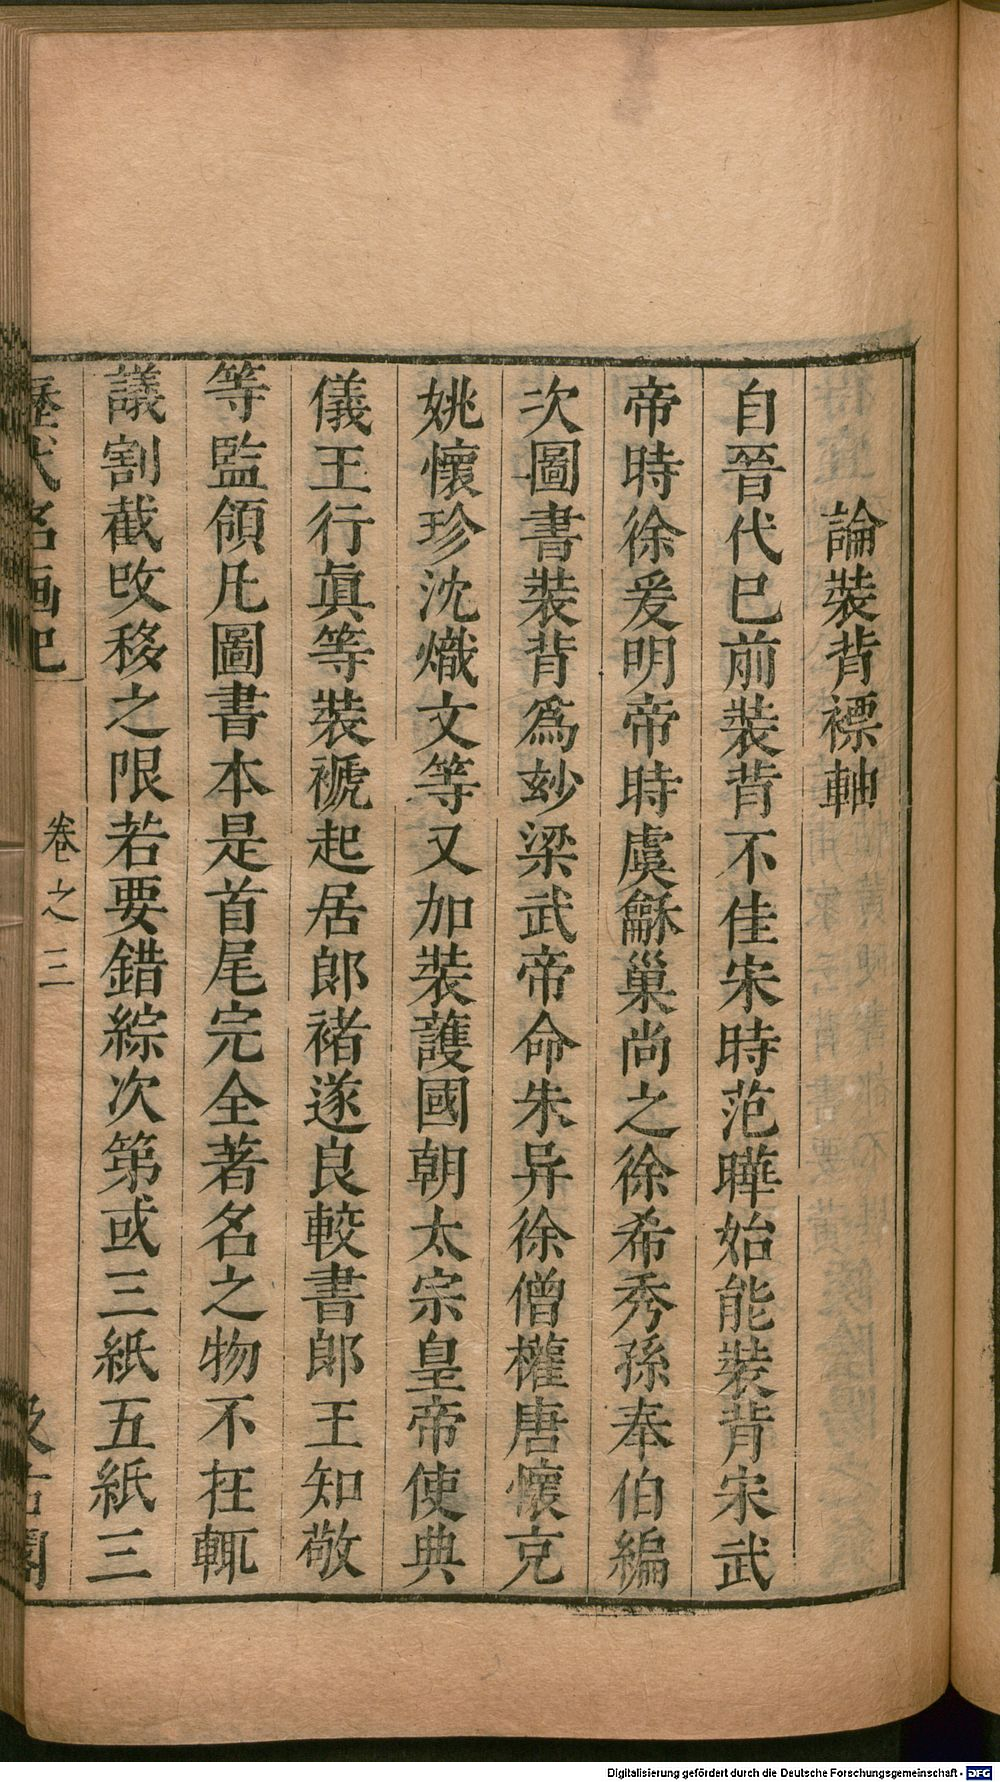 論裝背褾軸
自晉代已前裝背不佳宋時范曄始能裝背宋武
帝時徐爰明帝時虞龢巢尚之徐希秀孫奉伯編
次圖書裝背爲玅梁武帝命朱异徐僧權唐懷克
姚懷珍沈熾文等又加裝護國朝太宗皇帝使典
儀王行眞等裝褫起居郎褚遂良較書郎王知敬
等監領凡圖書本是首尾完全著名之物不在輒
議割截攺移之限若要錯綜次第或三紙五紙三
歷代名画記
卷之三
汲古閣
Digitalisierung gefördert durch die Deutsche Forschungsgemeinschaft - DFG